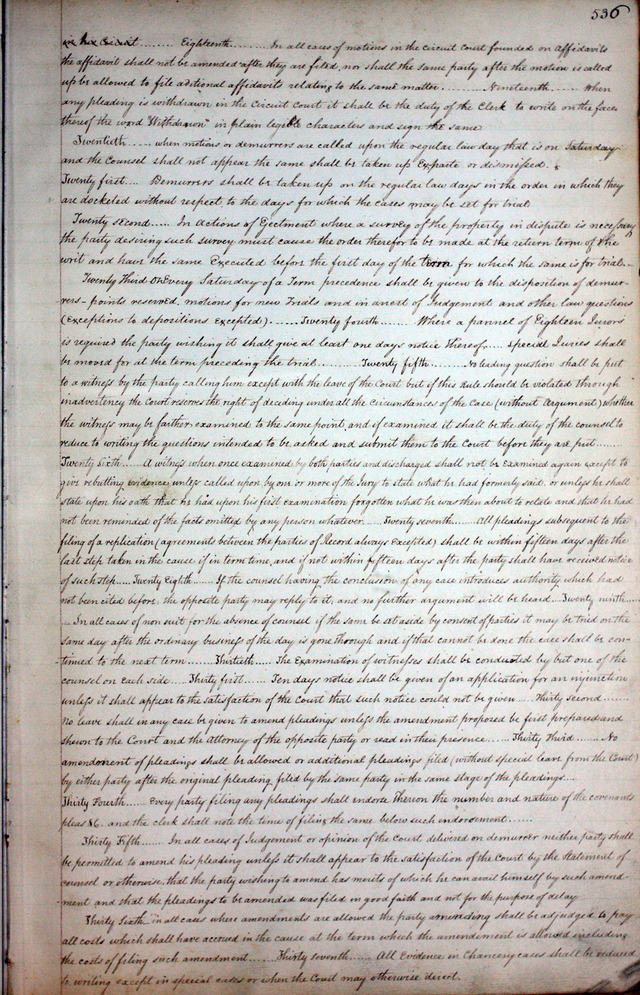 536
Circuit ....... Eighteenth ........ In all cases of motions in the circuit Court founded on Affidavits
the affidavit shall not be amended after they are filed, nor shall the same party after the motion is called
up be allowed to file additional affidavits relating to the same matter. ........... Nineteenth ....... When
any pleading is withdrawn in the Circuit Court it shall be the duty of the Clerk to write on the face
thereof the word "Withdrawn" in plain legible characters and sign the same
Twentieth ..... when motions or demurrers are called upon the regular law day that is on Saturday
and the Counsel shall not appear the same shall be taken up Exparte or dismissed.
Twenty first.... Demurrers shall be taken up on the regular law days in the order in which they
are docketed without respect to the days for which the cases may be set for trial
Twenty second..... In actions of Ejectment where a survey of the property in dispute is necessary
the party desiring such survey must cause the order therefor to be made at the return term of the
writ and have the same Executed before the first day of the term for which the same is for trial..
Twenty Third On Every Saturday of a Term precedence shall be given to the disposition of demur-
rers - points reserved, motions for new Trials and in arrest of Judgement and other law questions
(Exceptions to depositions Excepted). ...... Twenty fourth ..... Where a pannel of Eighteen Jurors
is required the party wishing it shall give at least one days notice thereof.... Special Juries shall
be moved for at the term preceding the trial. ........ Twenty fifth ..... No leading question shall be put
to a witness by the party calling him except with the leave of the Court but if this Rule should be violated through
inadvertency the Court reserves the right of deciding under all the circumstances of the Case (without Argument) whether
the witness may be farther examined to the same point, and if examined it shall be the duty of the counsel to
reduce to writing the questions intended to be asked and submit them to the Court before they are put ......
Twenty Sixth..... A witness when once examined by both parties and discharged shall not be examined again except to
give rebutting evidence, unless called upon by one or more of the Jury to state what he had formerly said, or unless he shall
state upon his oath that he had upon his first examination forgotten what he was then about to relate and that he had
not been reminded of the facts omitted by any person whatever .... Twenty seventh ...... All pleadings subsequent to the
filing of a replication (agreements between the parties of Record always Excepted) shall be within fifteen days after the
last step taken in the cause if in term time, and if not within fifteen days after the party shall have received notice
of such step.... Twenty Eighth ..... If the counsel having the conclusion of any case introduces authority which had
not been cited before, the opposite party may reply to it, and no further argument will be heard .. Twenty ninth ....
... In all cases of non suit for the absence of counsel if the same be set aside by consent of parties it may be tried on the
same day after the ordinary business of the day is gone through and if that cannot be done the case shall be con-
tinued to the next term ....... Thirtieth .... The Examination of witnesses shall be conducted by but one of the
counsel on each side .... Thirty first ..... Ten days notice shall be given of an application for an injunction
unless it shall appear to the satisfaction of the Court that such notice could not be given .... Thirty Second .....
No leave shall in any case be given to amend pleadings unless the amendment proposed be first prepared and
shewn to the Court and the attorney of the opposite party or read in their presence .... Thirty Third .... No
amendment of pleadings shall be allowed or additional pleadings filed (without special leave from the Court)
by either party after the original pleading filed by the same party in the same stage of the pleadings....
Thirty Fourth .... Every party filing any pleadings shall endorse Thereon the number and nature of the covenants
pleas &c. and the clerk shall note the time of filing the same below such endorsement......
Thirty Fifth .... In all cases of Judgement or opinion of the Court delivered on demurrer neither party shall
be permitted to amend his pleading unless it shall appear to the satisfaction of the Court by the statement of
counsel or otherwise, that the party wishing to amend has merits of which he can avail himself by such amend-
-ment and that the pleadings to be amended was filed in good faith and not for the purpose of delay
Thirty Sixth in all cases where amendments are allowed the party amending shall be adjudged to pay
all costs which shall have accrued in the cause at the term which the amendement is allowed including
the costs of filing such amendment ..... Thirty seventh .... All Evidence in Chancery cases shall be reduced
to writing except in special cases or when the Court may otherwise direct.